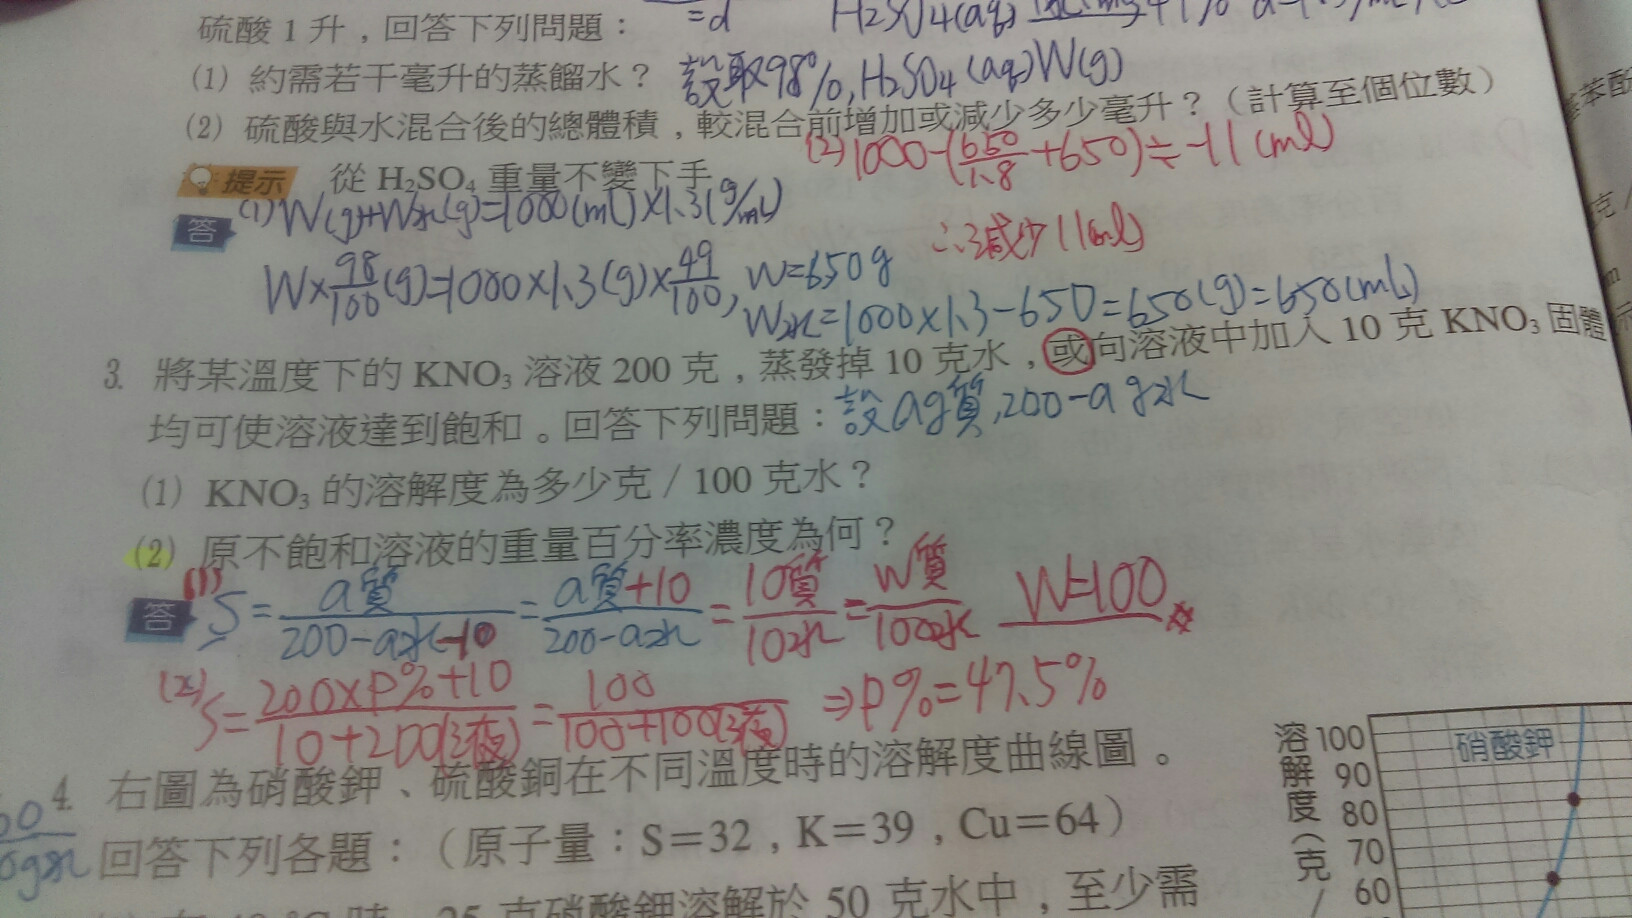 =d H₂SO₄(aq)
硫酸 1 升，回答下列問題：
(1) 約需若干毫升的蒸餾水？ 設取98%,H₂SO₄(aq)W(g)
(2) 硫酸與水混合後的總體積，較混合前增加或減少多少毫升？（計算至個位數）
(2)1000-(650/1.8+650)≒-11(ml)
提示 從 H₂SO₄ 重量不變下手
答 (1)W(g)+W水(g)=1000(ml)×1.3(g/ml)
∴減少11(ml)
W×98/100(g)=1000×1.3(g)×49/100, W=650g
W水=1000×1.3-650=650(g)=650(ml)
3. 將某溫度下的 KNO₃ 溶液 200 克，蒸發掉 10 克水，或向溶液中加入 10 克 KNO₃ 固體
均可使溶液達到飽和。回答下列問題：設ag質,200-a g水
(1) KNO₃ 的溶解度為多少克／100 克水？
(2) 原不飽和溶液的重量百分率濃度為何？
答 (1) S=a質/200-a水-10=a質+10/200-a水=10質/10水=W質/100水 W=100
(2) S=200×P%+10/10+200(液)=100/100+100(液) ⇒P%=47.5%
4. 右圖為硝酸鉀、硫酸銅在不同溫度時的溶解度曲線圖。
回答下列各題：（原子量：S＝32，K＝39，Cu＝64）
25 克硝酸鉀溶解於 50 克水中，至少需
溶解度（克／
100
90
80
70
60
硝酸鉀